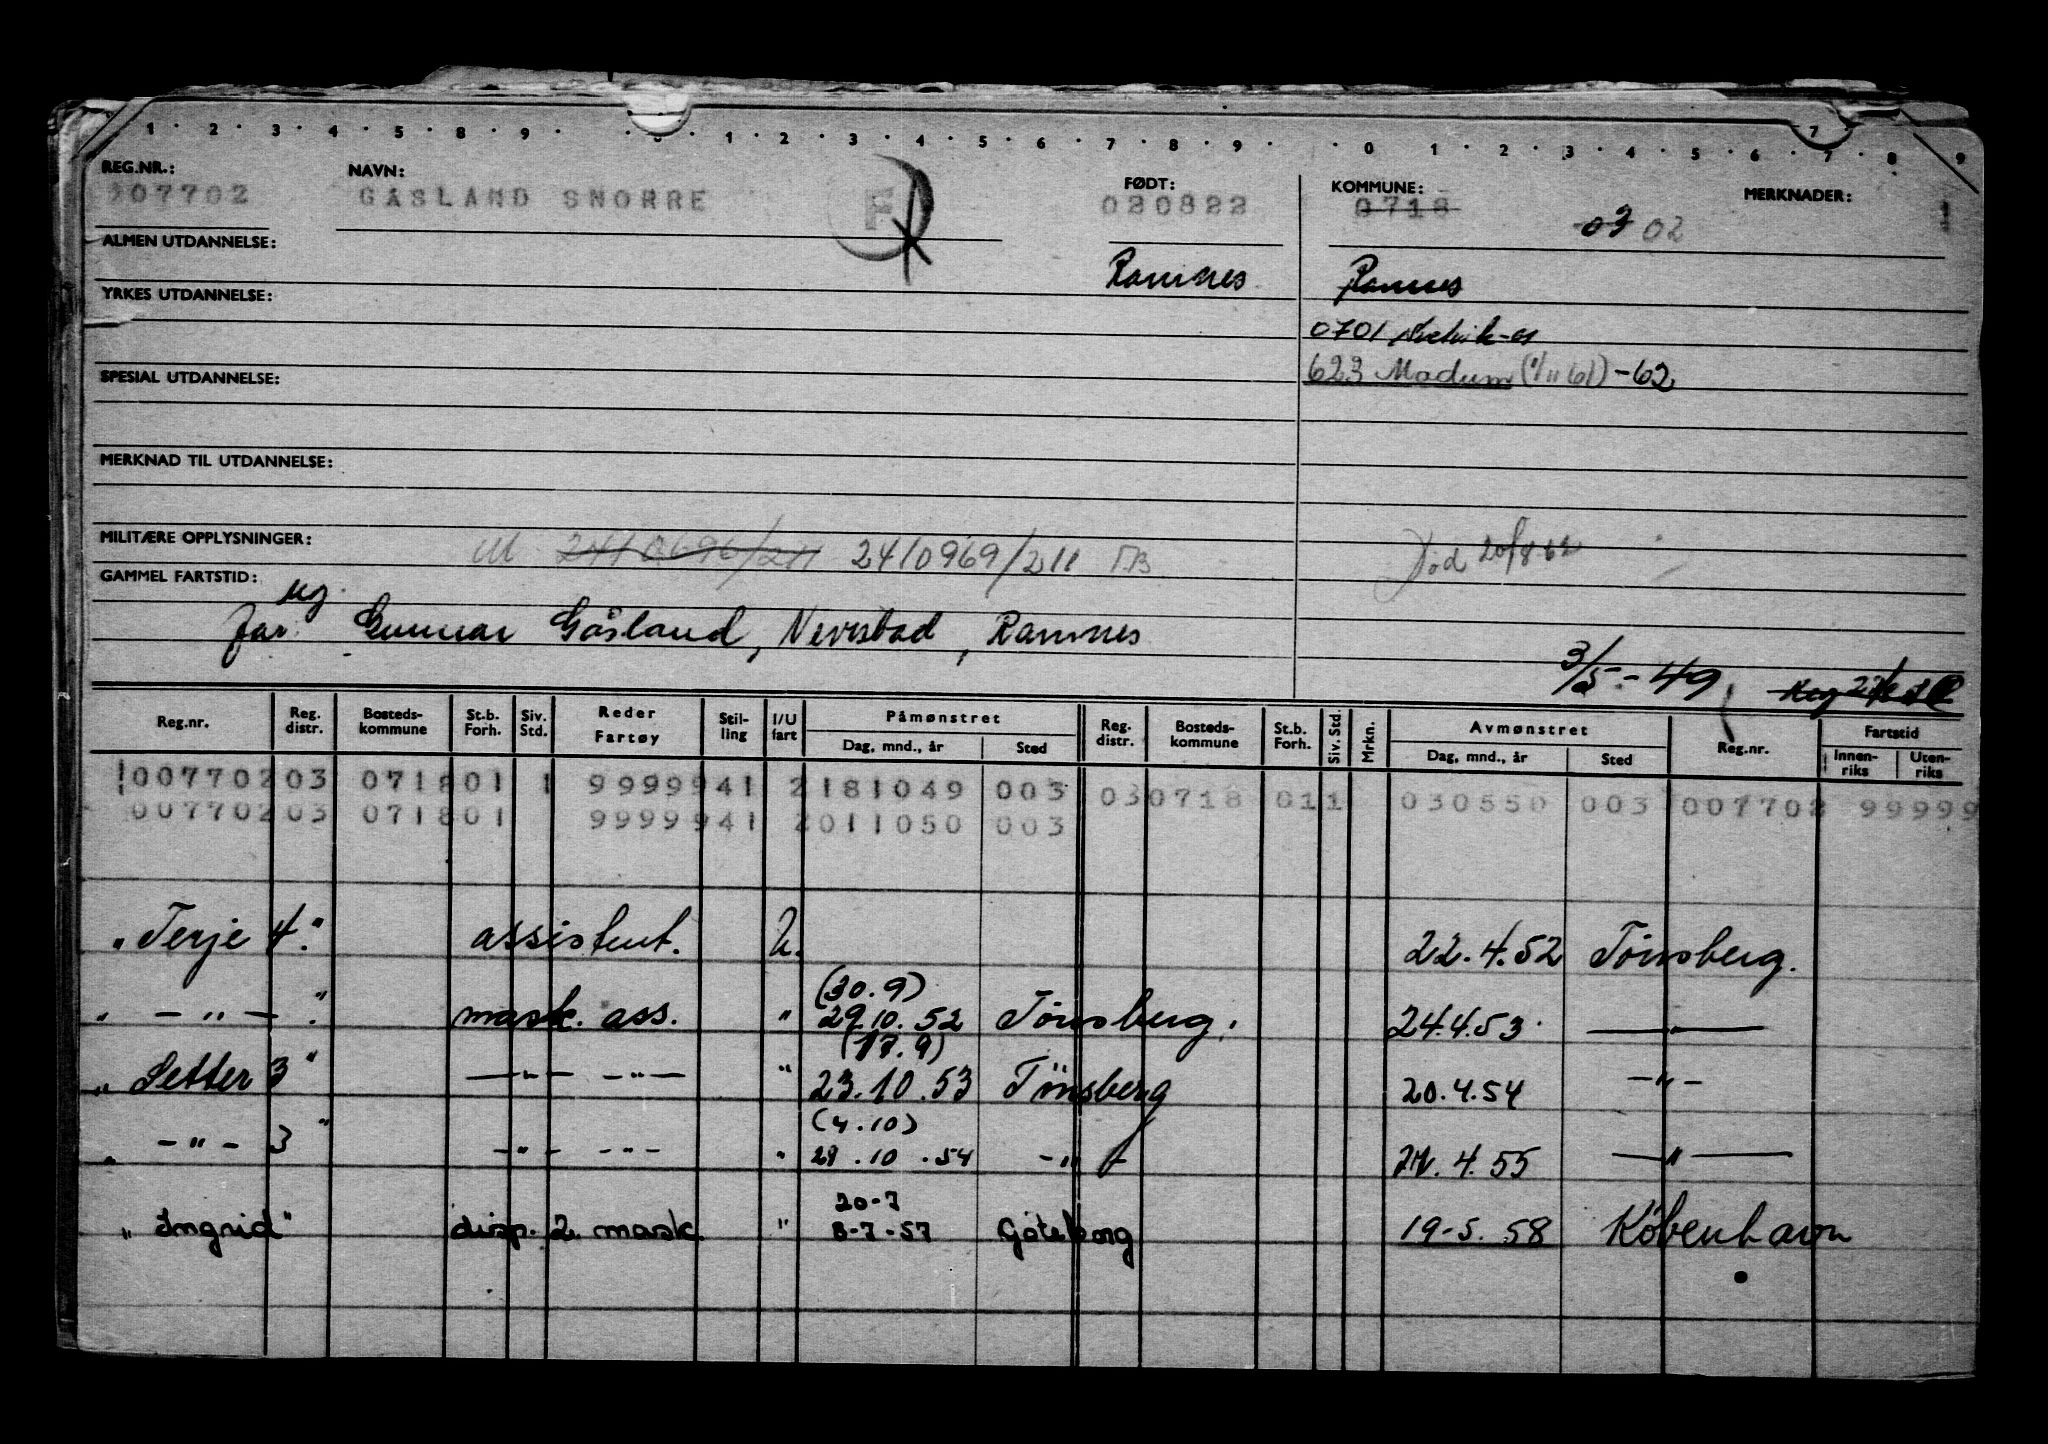 1 · 2 · 3 · 4 · 5 · 8 · 9 · · 0 · 1 · 2 · 3 · 4 · 5 · 6 · 7 · 8 · 9 · · 0 · 1 · 2 · 3 · 4 · 5 · 6 · 7 · 8 · 9
7
REG.NR.: NAVN: FØDT: KOMMUNE: MERKNADER:
007702 GÅSLAND SNORRE F 020822 0718 1
03 02
ALMEN UTDANNELSE:
Ramnes Ramnes
YRKES UTDANNELSE:
0701
SPESIAL UTDANNELSE: 623 Modum (1/11 61) -62
MERKNAD TIL UTDANNELSE:
MILITÆRE OPPLYSNINGER: M 2410696/211 2410969/211 T.B. Død 20/8 62
GAMMEL FARTSTID:
ug.
far: Gunnar Gåsland, Nerstad, Ramnes
3/5 - 49
Reg.nr. Reg. distr. Bosteds-kommune St.b. Forh. Siv. Std. Reder Fartøy Stil-ling I/U fart Påmønstret Dag, mnd., år Sted Reg. distr. Bosteds-kommune St.b. Forh. Siv. Std. Mrkn. Avmønstret Dag, mnd., år Sted Reg.nr. Fartstid Innen-riks Uten-riks
007702 03 0718 01 1 9999 941 2 181049 003 03 0718 01 1 030550 003 007702 99999
007702 03 0718 01 9999 941 2 011050 003
" Terje 4." assistent. U. 22.4.52 Tönsberg.
(30.9)
" — " — ." mask. ass. " 29.10.52 Tönsberg. 24.4.53. — " —
(17.9)
" Setter 3" — " — — " — " 23.10.53 Tönsberg 20.4.54 — " —
(4.10)
" — " — 3 " — " — — " — " 29.10.54 — " — 4.55 — " —
20-7
" Ingrid" disp. 2. mask. " 8-7-57 Göteborg 19-5.58 København